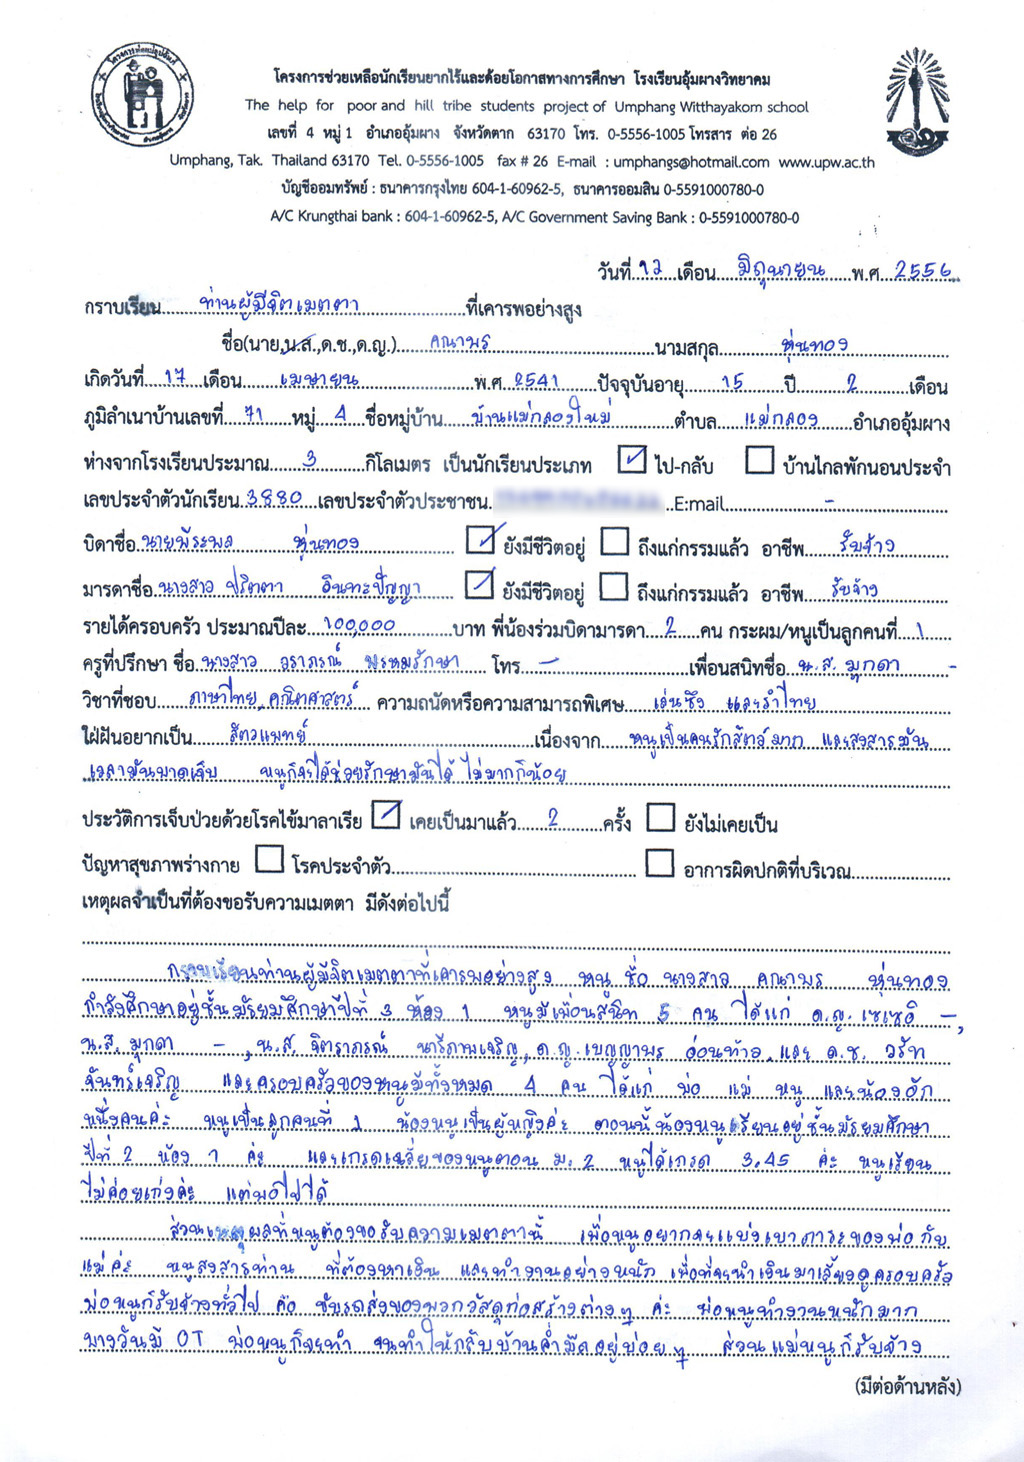 โครงการช่วยเหลือนักเรียนยากไร้และด้อยโอกาสทางการศึกษา โรงเรียนอุ้มผางวิทยาคม
The help for poor and hill tribe students project of Umphang Witthayakom school
เลขที่ 4 หมู่ 1 อำเภออุ้มผาง จังหวัดตาก 63170 โทร. 0-5556-1005 โทรสาร ต่อ 26
Umphang, Tak. Thailand 63170 Tel. 0-5556-1005 fax # 26 E-mail : umphangs@hotmail.com www.upw.ac.th
บัญชีออมทรัพย์ : ธนาคารกรุงไทย 604-1-60962-5, ธนาคารออมสิน 0-5591000780-0
A/C Krungthai bank : 604-1-60962-5, A/C Government Saving Bank : 0-5591000780-0
วันที่ 12 เดือน มิถุนายน พ.ศ. 2556
กราบเรียน ท่านผู้มีจิตเมตตา ที่เคารพอย่างสูง
ชื่อ(นาย,น.ส.,ด.ช.,ด.ญ.) คณาพร นามสกุล หุ่นทอง
เกิดวันที่ 17 เดือน เมษายน พ.ศ. 2541 ปัจจุบันอายุ 15 ปี 2 เดือน
ภูมิลำเนาบ้านเลขที่ 71 หมู่ 4 ชื่อหมู่บ้าน บ้านแม่กลองใหม่ ตำบล แม่กลอง อำเภออุ้มผาง
ห่างจากโรงเรียนประมาณ 3 กิโลเมตร เป็นนักเรียนประเภท ไป-กลับ บ้านไกลพักนอนประจำ
เลขประจำตัวนักเรียน 3880 เลขประจำตัวประชาชน E:mail -
บิดาชื่อ นายพีระพล หุ่นทอง ยังมีชีวิตอยู่ ถึงแก่กรรมแล้ว อาชีพ รับจ้าง
มารดาชื่อ นางสาว ปริตตา อินทะปัญญา ยังมีชีวิตอยู่ ถึงแก่กรรมแล้ว อาชีพ รับจ้าง
รายได้ครอบครัว ประมาณปีละ 100,000 บาท พี่น้องร่วมบิดามารดา 2 คน กระผม/หนูเป็นลูกคนที่ 1
ครูที่ปรึกษา ชื่อ นางสาว วราภรณ์ พรหมรักษา โทร - เพื่อนสนิทชื่อ น.ส. มุกดา -
วิชาที่ชอบ ภาษาไทย, คณิตศาสตร์ ความถนัดหรือความสามารถพิเศษ เล่นซึง และรำไทย
ใฝ่ฝันอยากเป็น สัตวแพทย์ เนื่องจาก หนูเป็นคนรักสัตว์มาก และสงสารมัน
เวลามันบาดเจ็บ หนูก็จะได้ช่วยรักษามันได้ ไม่มากก็น้อย
ประวัติการเจ็บป่วยด้วยโรคไข้มาลาเรีย เคยเป็นมาแล้ว 2 ครั้ง ยังไม่เคยเป็น
ปัญหาสุขภาพร่างกาย โรคประจำตัว อาการผิดปกติที่บริเวณ
เหตุผลจำเป็นที่ต้องขอรับความเมตตา มีดังต่อไปนี้
กราบเรียนท่านผู้มีจิตเมตตาที่เคารพอย่างสูง หนู ชื่อ นางสาว คณาพร หุ่นทอง
กำลังศึกษาอยู่ชั้นมัธยมศึกษาปีที่ 3 ห้อง 1 หนูมีเพื่อนสนิท 5 คน ได้แก่ ด.ญ. เซเซอิ -,
น.ส. มุกดา -, น.ส. จิตราภรณ์ นารีภาพเจริญ, ด.ญ. เบญญาพร อ่อนท้าว และ ด.ช. วรัท
จันทร์เจริญ และครอบครัวของหนูมีทั้งหมด 4 คน ได้แก่ พ่อ แม่ หนู และน้องอีก
หนึ่งคนค่ะ หนูเป็นลูกคนที่ 1 น้องหนูเป็นผู้หญิงค่ะ ตอนนี้น้องหนูเรียนอยู่ชั้นมัธยมศึกษา
ปีที่ 2 ห้อง 1 ค่ะ และเกรดเฉลี่ยของหนูตอน ม.2 หนูได้เกรด 3.45 ค่ะ หนูเรียน
ไม่ค่อยเก่งค่ะ แต่พอไปได้
ส่วนเหตุผลที่หนูต้องขอรับความเมตตานี้ เพื่อหนูอยากจะแบ่งเบาภาระของพ่อกับ
แม่ค่ะ หนูสงสารท่าน ที่ต้องหาเงิน และทำงานอย่างหนัก เพื่อที่จะนำเงินมาเลี้ยงดูครอบครัว
พ่อหนูก็รับจ้างทั่วไป คือ ขับรถส่งของพวกวัสดุก่อสร้างต่างๆ ค่ะ พ่อหนูทำงานหนักมาก
บางวันมี OT พ่อหนูก็จะทำ จนทำให้กลับบ้านค่ำมืดอยู่บ่อยๆ ส่วนแม่หนูก็รับจ้าง
(มีต่อด้านหลัง)